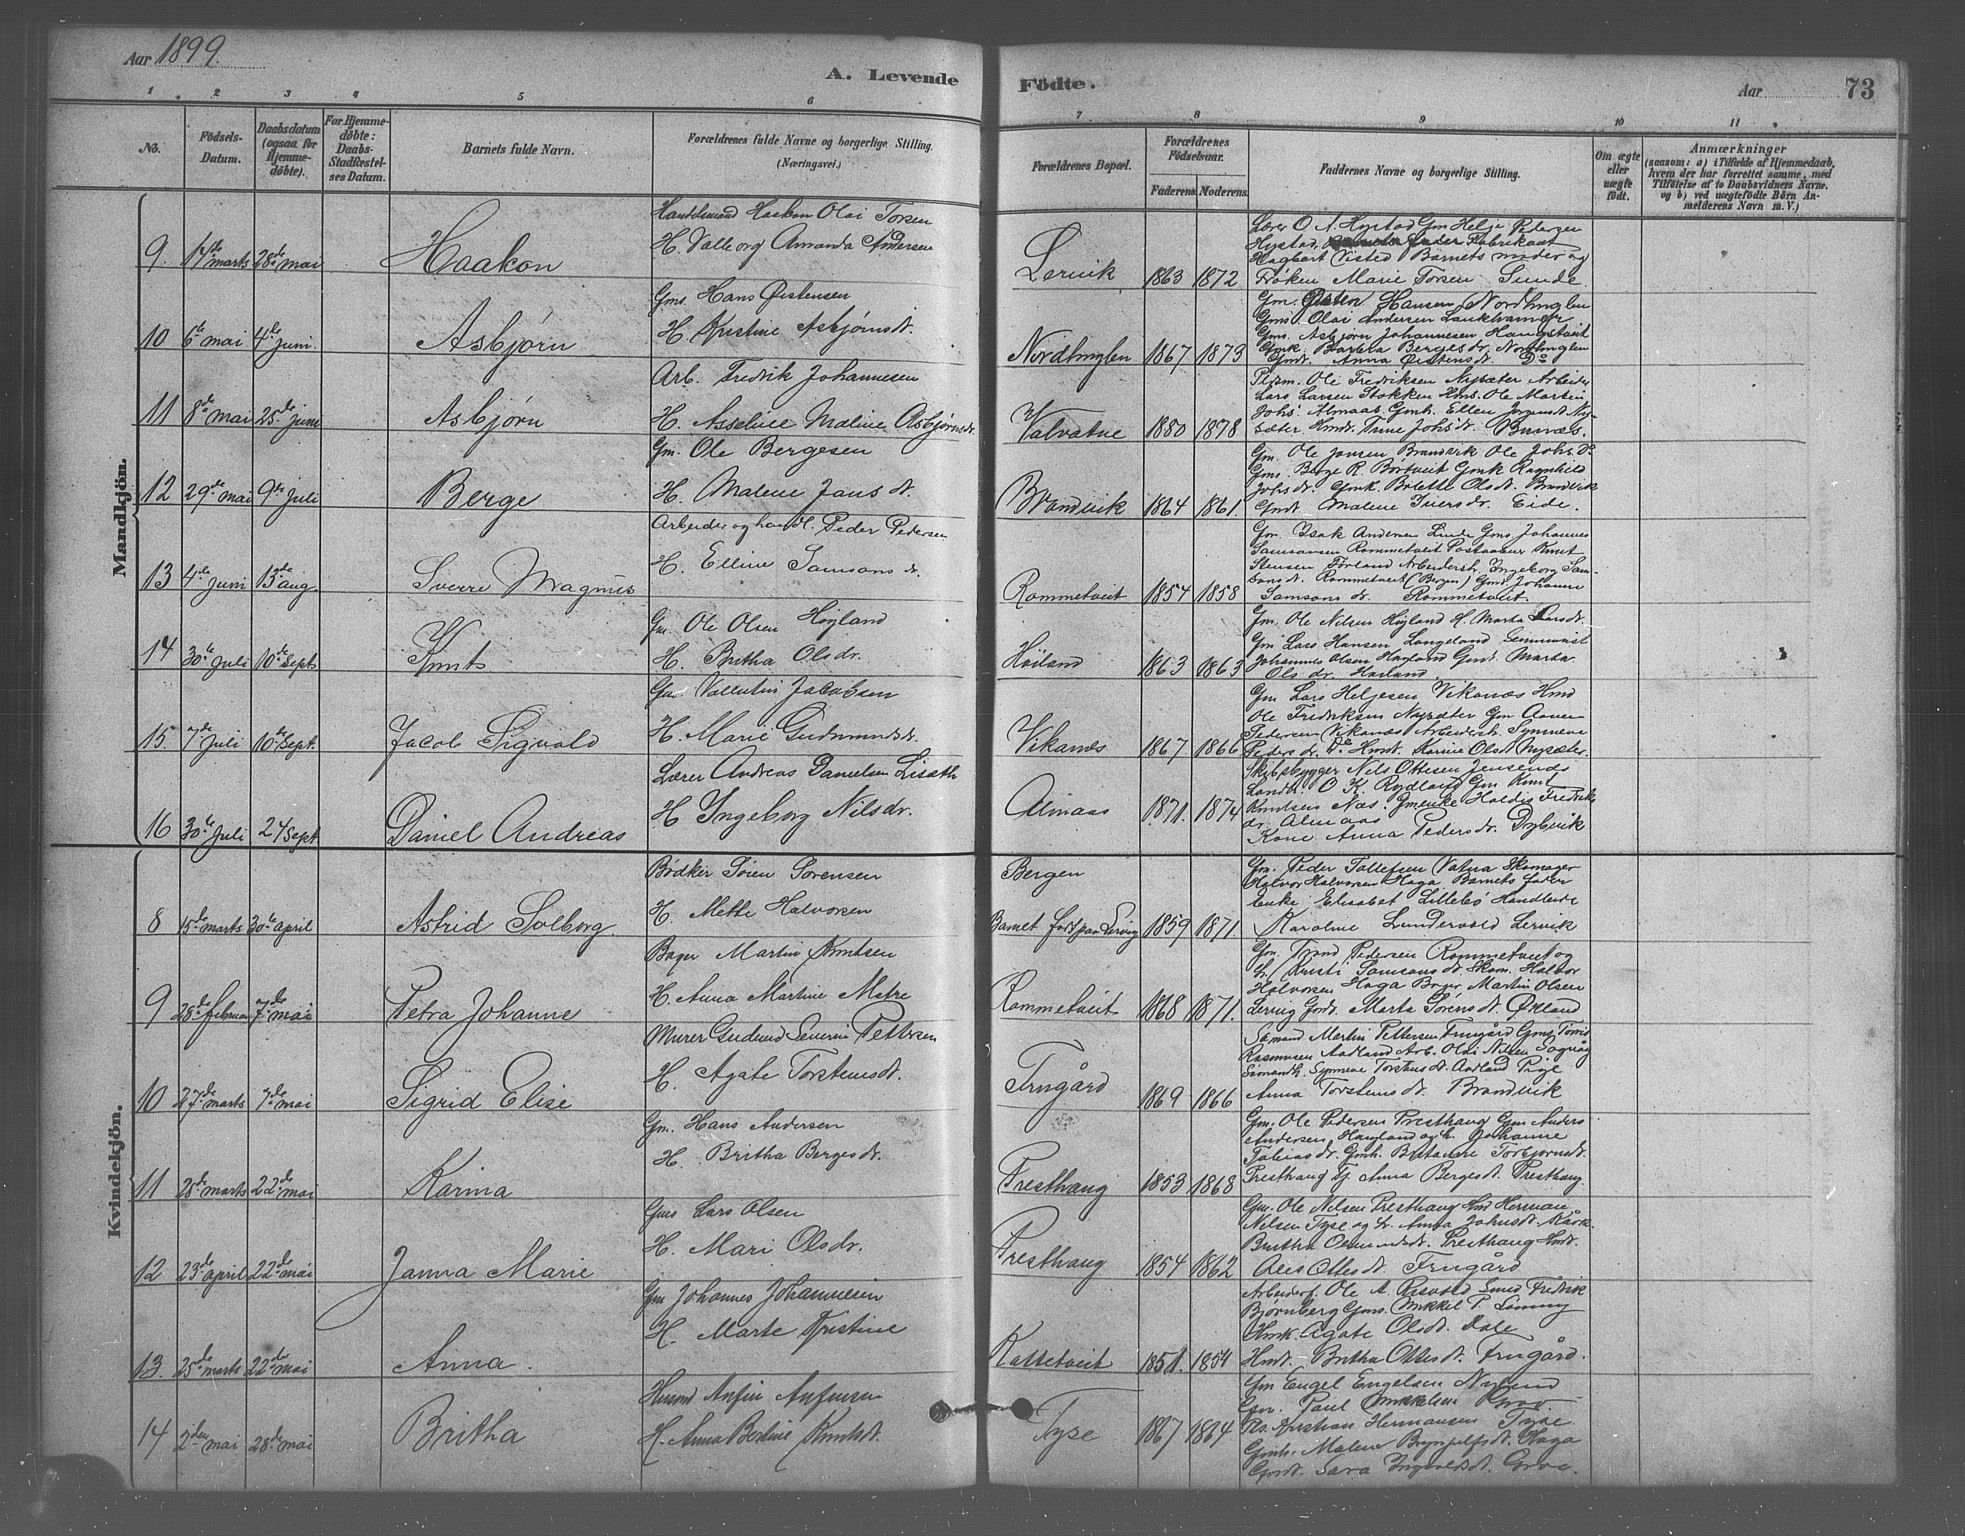 Aar 1899.
A. Levende Födte.
Aar 73
1 2 3 4 5 6 7 8 9 10 11
No.
Födsels-Datum.
Daabsdatum (ogsaa for Hjemmedöbte).
For Hjemmedöbte: Daabs-Stadfæstelses Datum.
Barnets fulde Navn.
Forældrenes fulde Navne og borgerlige Stilling. (Næringsvei.)
Forældrenes Bopæl.
Forældrenes Födselsaar.
Faderens. Moderens.
Faddernes Navne og borgerlige Stilling.
Om ægte eller uægte födt.
Anmærkninger
(saasom: a) i Tilfælde af Hjemmedaab, hvem der har forrettet samme, med Tilföielse af to Daabsvidners Navne. og b) ved uægtefödte Börn Anmelderens Navn m. V.)
Mandkjön.
9. 14de marts 28de mai Haakon
Handelsmand Haakon Olai Torsen
H. Valborg Amanda Andersen
Lervik 1863 1872
Lærer O. A. Hystad Gm Helje Petersen
Hystad, Fabrikant
Hagbart Visted Barnets moder og
Frøken Marie Torsen Sunde
10 6te mai 4de juni. Asbjørn
Gms. Hans Øistensen
H. Kristine Asbjørnsdt.
Nordhuglen 1867 1873
Gm. Øisten Hansen Nordhuglen
Gms. Olai Andersen
Gms. Asbjørn Johannesen Haugstveit
Gmk. Barbra Bergesdr. Nordhuglen
Gmdt. Anna Øistensdt. Do
11 8de mai 25de juni Asbjørn
Arb. Fredrik Johannesen
H. Asseline Maline Asbjørnsdt.
Valvatne 1880 1878
Pigm. Ole Fredriksen Nysæter Arbeider
Lars Larsen Stokken Hms. Ole Martin
Johs. Almaas Gmk. Ellen Jørgensdt Ny-
sæter Hmdt. Trine Johsdt.
12 29de mai 9de Juli Berge
Gm. Ole Bergesen
H. Malene Jansdt.
Brandvik 1864 1861.
Gm. Ole Jensen Brandvik Ole Johs Do
Gms. Berge R. Børtveit Gmk Ragnhild
Johsdr. Gmk. Bolette Olsdt. Brandvik
Gmdt. Malene Iversdr. Eide.
13 4de juni 13de aug. Sverre Magnus
Arbeider og handl. Peder Pedersen
H. Elline Samsonsdr.
Rommetveit 1854 1858
Gm. Isak Andersen Lunde Gms Johannes
Samsonsen Rommetveit Postaabner Knut
Stensen Førland Arbeiderstr. Ingeborg Sam-
sonsdt. Rommetveit (Bergen) Gmdt. Johanne
Samsonsdr. Rommetveit.
14 30te juli 10de Sept Knut
Gm. Ole Olsen Høyland
H. Britha Olsdr.
Høiland 1863 1863
Gm. Ole Nilsen Høyland H. Marta Larsdt.
Gm Lars Hansen Langeland
Johannes Olsen Høyland Gmdt. Marta
Olsdr. Høiland
15. 7de Juli 10de Sept. Jacob Sigvald
Gm. Vallentin Jacobsen
H. Marie Gudmundsdt.
Vikanes 1867 1866
Gm Lars Heljesen Vikanes Hmd
Ole Fredriksen Nysæter Gm
Pedersen Vikanes Arbeiderstr. Synneve
Pedersdr. Do Hmdt. Karine Olsdt Nysæter.
16 30te Juli 24 Sept Daniel Andreas
Lærer Andreas Danielsen Lisæth
H Ingeborg Nilsdr.
Almaas 1871. 1874
Skibsbygger Nils Ottesen Jensenes
Landh. O. K. Rydland Gm Knut
Knutsen Næs. Gmenke Haldis Fredriks
dr. Almaas
Kone Anna Pedersdr. Dybvik
Kvindekjön.
8 15de marts 30te april Astrid Solborg.
Bødker Sören Sorensen
H. Mette Halvorsen
Bergen
Barnet født paa Lervig 1859 1871.
Gm. Peder Tollefsen Vatna Skomager
Halvor Halvorsen Haga Barnets fader
Enke Elisabet Lillebø Handlende
Karoline Lundervold Lervik
9 28de februar 7de mai Petra Johanne
Bager Martin Knutsen
H. Anna Martine Matre
Rommetveit 1868 1871.
Gm. Trond Pedersen Rommetveit og
h. Kristi Samsonsdt. Skom. Halvor
Halvorsen Haga Bager Martin Olsen
Lervig Gmdt. Marta Sörensdt. Økland
10 27de marts 7de mai Sigrid Elise
Murer Gudmund Severin Pettersen
H. Agate Torstensdt.
Frugård 1869 1866
Sømand Martin Pettersen Frugård Gms. Torris
Rasmusen Aadland Arb. Olai Nilsen Sagvåg
Sømandh. Synneve Torstensdt. Aadland Pige
Anna Torstensdt. Brandvik
11 28de marts 22de mai Karina
Gm. Hans Andersen
H. Britha Bergesdt.
Presthaug 1853 1868
Gm. Ole Pedersen Presthaug Gm Anders
Andersen Haugland og h. Johanne
Tobiasdr. Gmh. Torbjørnsdt.
Presthaug Tj. Anna Bergesdt. Presthaug.
12 23de april 22de mai Janna Marie
Gms Lars Olsen
H. Mari Olsdr.
Presthaug 1854 1862
Gm. Ole Nilsen Presthaug Hmd Herman
Nilsen Tyse og h. Anna Johnsdt.
Britha Osmundsdt. Presthaug Hmdt.
Alis Ottesdt. Frugård
13. 25de marts 22de mai Anna.
Gm Johannes Johannesen
H. Marte Kristine
Kattetveit 1851. 1854
Arbeiderf. Ole A. Risvold Smed Fredrik
Bjørnberg Gms. Mikkel P. Lønning
Hmk. Agate Olsdt. Dale
Hmdt. Britha Ottesdt. Frugård.
14 2den mai 28de mai Britha
Husmd Anfin Anfinsen
H. Anna Bertine Knutsdt.
Tyse 1867 1864
Gm Engel Engelsen Nysund
Gm. Paul Mikkelsen Grov
Kristian Hermansen Tyse
Gmh. Malene Brynjelfsdt. Haga
Gmdt. Sara Ingvaldsdt. Grov.